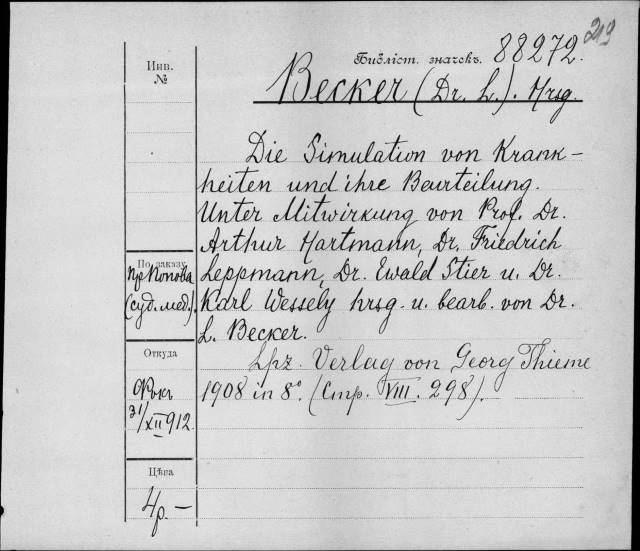 219
Библіот. значекъ. 88272.
Инв.
№
Becker (Dr. L.). Hrsg.
Die Simulation von Krank-
heiten und ihre Beurteilung.
Unter Mitwirkung von Prof. Dr.
Arthur Hartmann, Dr. Friedrich
По заказу
пр Попова
(суд. мед.).
Leppmann, Dr. Ewald Stier u. Dr.
Karl Wessely hrsg. u. bearb. von Dr.
L. Becker.
Откуда
Фокъ
31/XII 912.
Lpz. Verlag von Georg Thieme
1908 in 8°. (Стр. VIII. 298).
Цѣна
4р. —